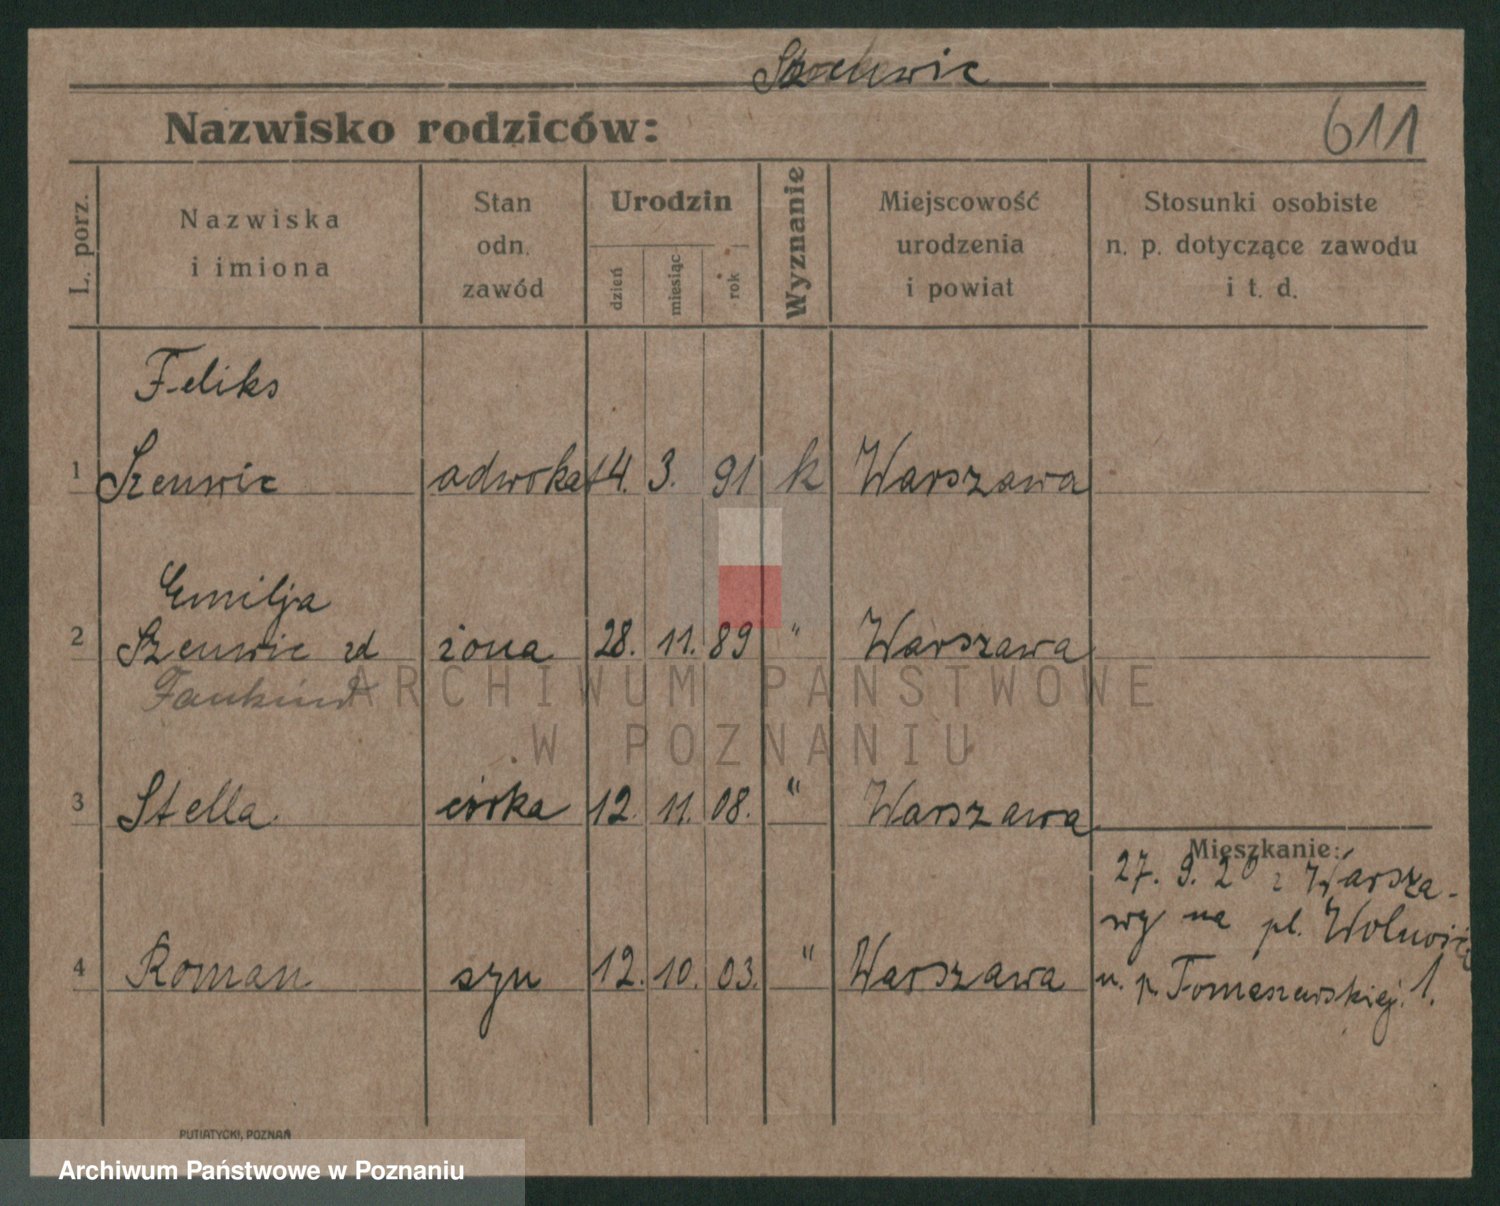 Szenwic
Nazwisko rodziców:
611
L. porz.
Nazwiska
i imiona
Stan
odn.
zawód
Urodzin
dzień
miesiąc
rok
Wyznanie
Miejscowość
urodzenia
i powiat
Stosunki osobiste
n. p. dotyczące zawodu
i t. d.
Feliks
1 Szenwic adwokat 14. 3. 91 k Warszawa
Emilja
2 Szenwic zd żona 28. 11. 89 " Warszawa
3 Stella córka 12. 11. 08. " Warszawa
Mieszkanie:
27. 9. 20 z Warsza-
wy na pl. Wolności
4 Roman syn 12. 10. 03. " Warszawa
u. p. Tomaszewskiej. 1.
PUTIATYCKI, POZNAŃ
ARCHIWUM PAŃSTWOWE
W POZNANIU
Archiwum Państwowe w Poznaniu